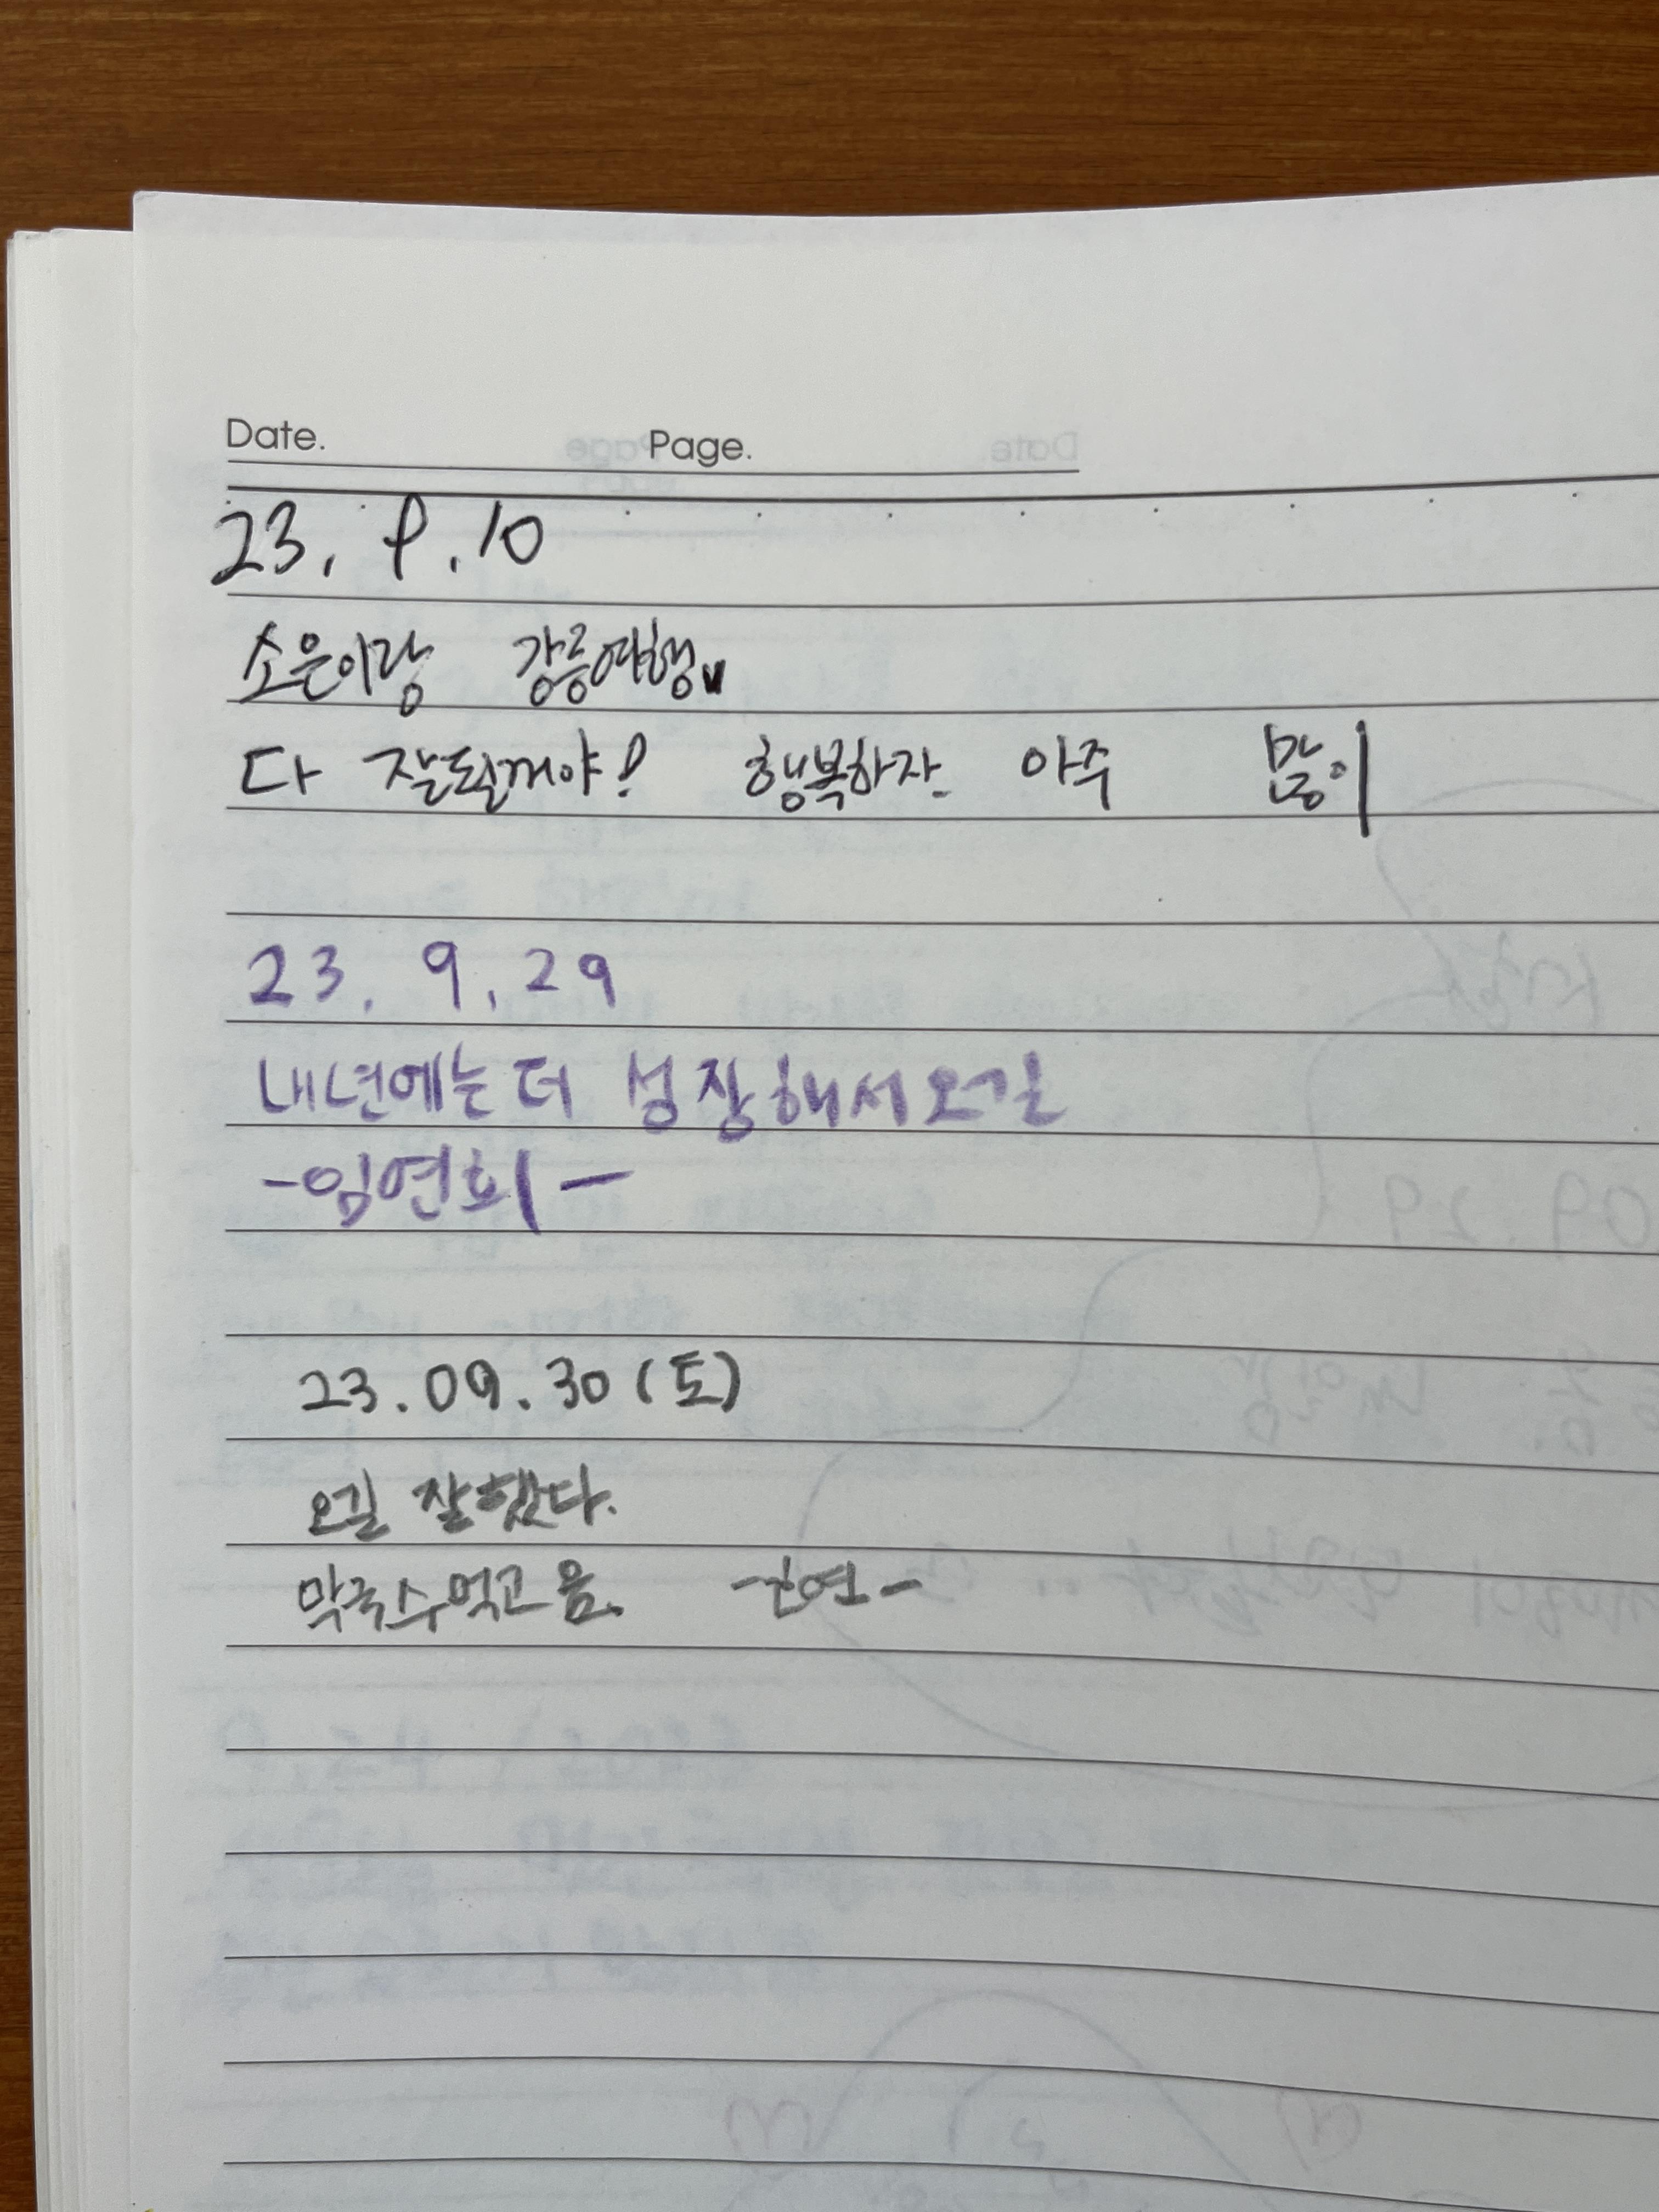 Date. Page.
23. 9. 10
소은이랑 강릉여행♥
다 잘될꺼야! 행복하자. 아주 많이
23. 9. 29
내년에는 더 성장해서 오길
-임연회-
23.09.30 (토)
오길 잘했다.
막국수 먹고 옴.